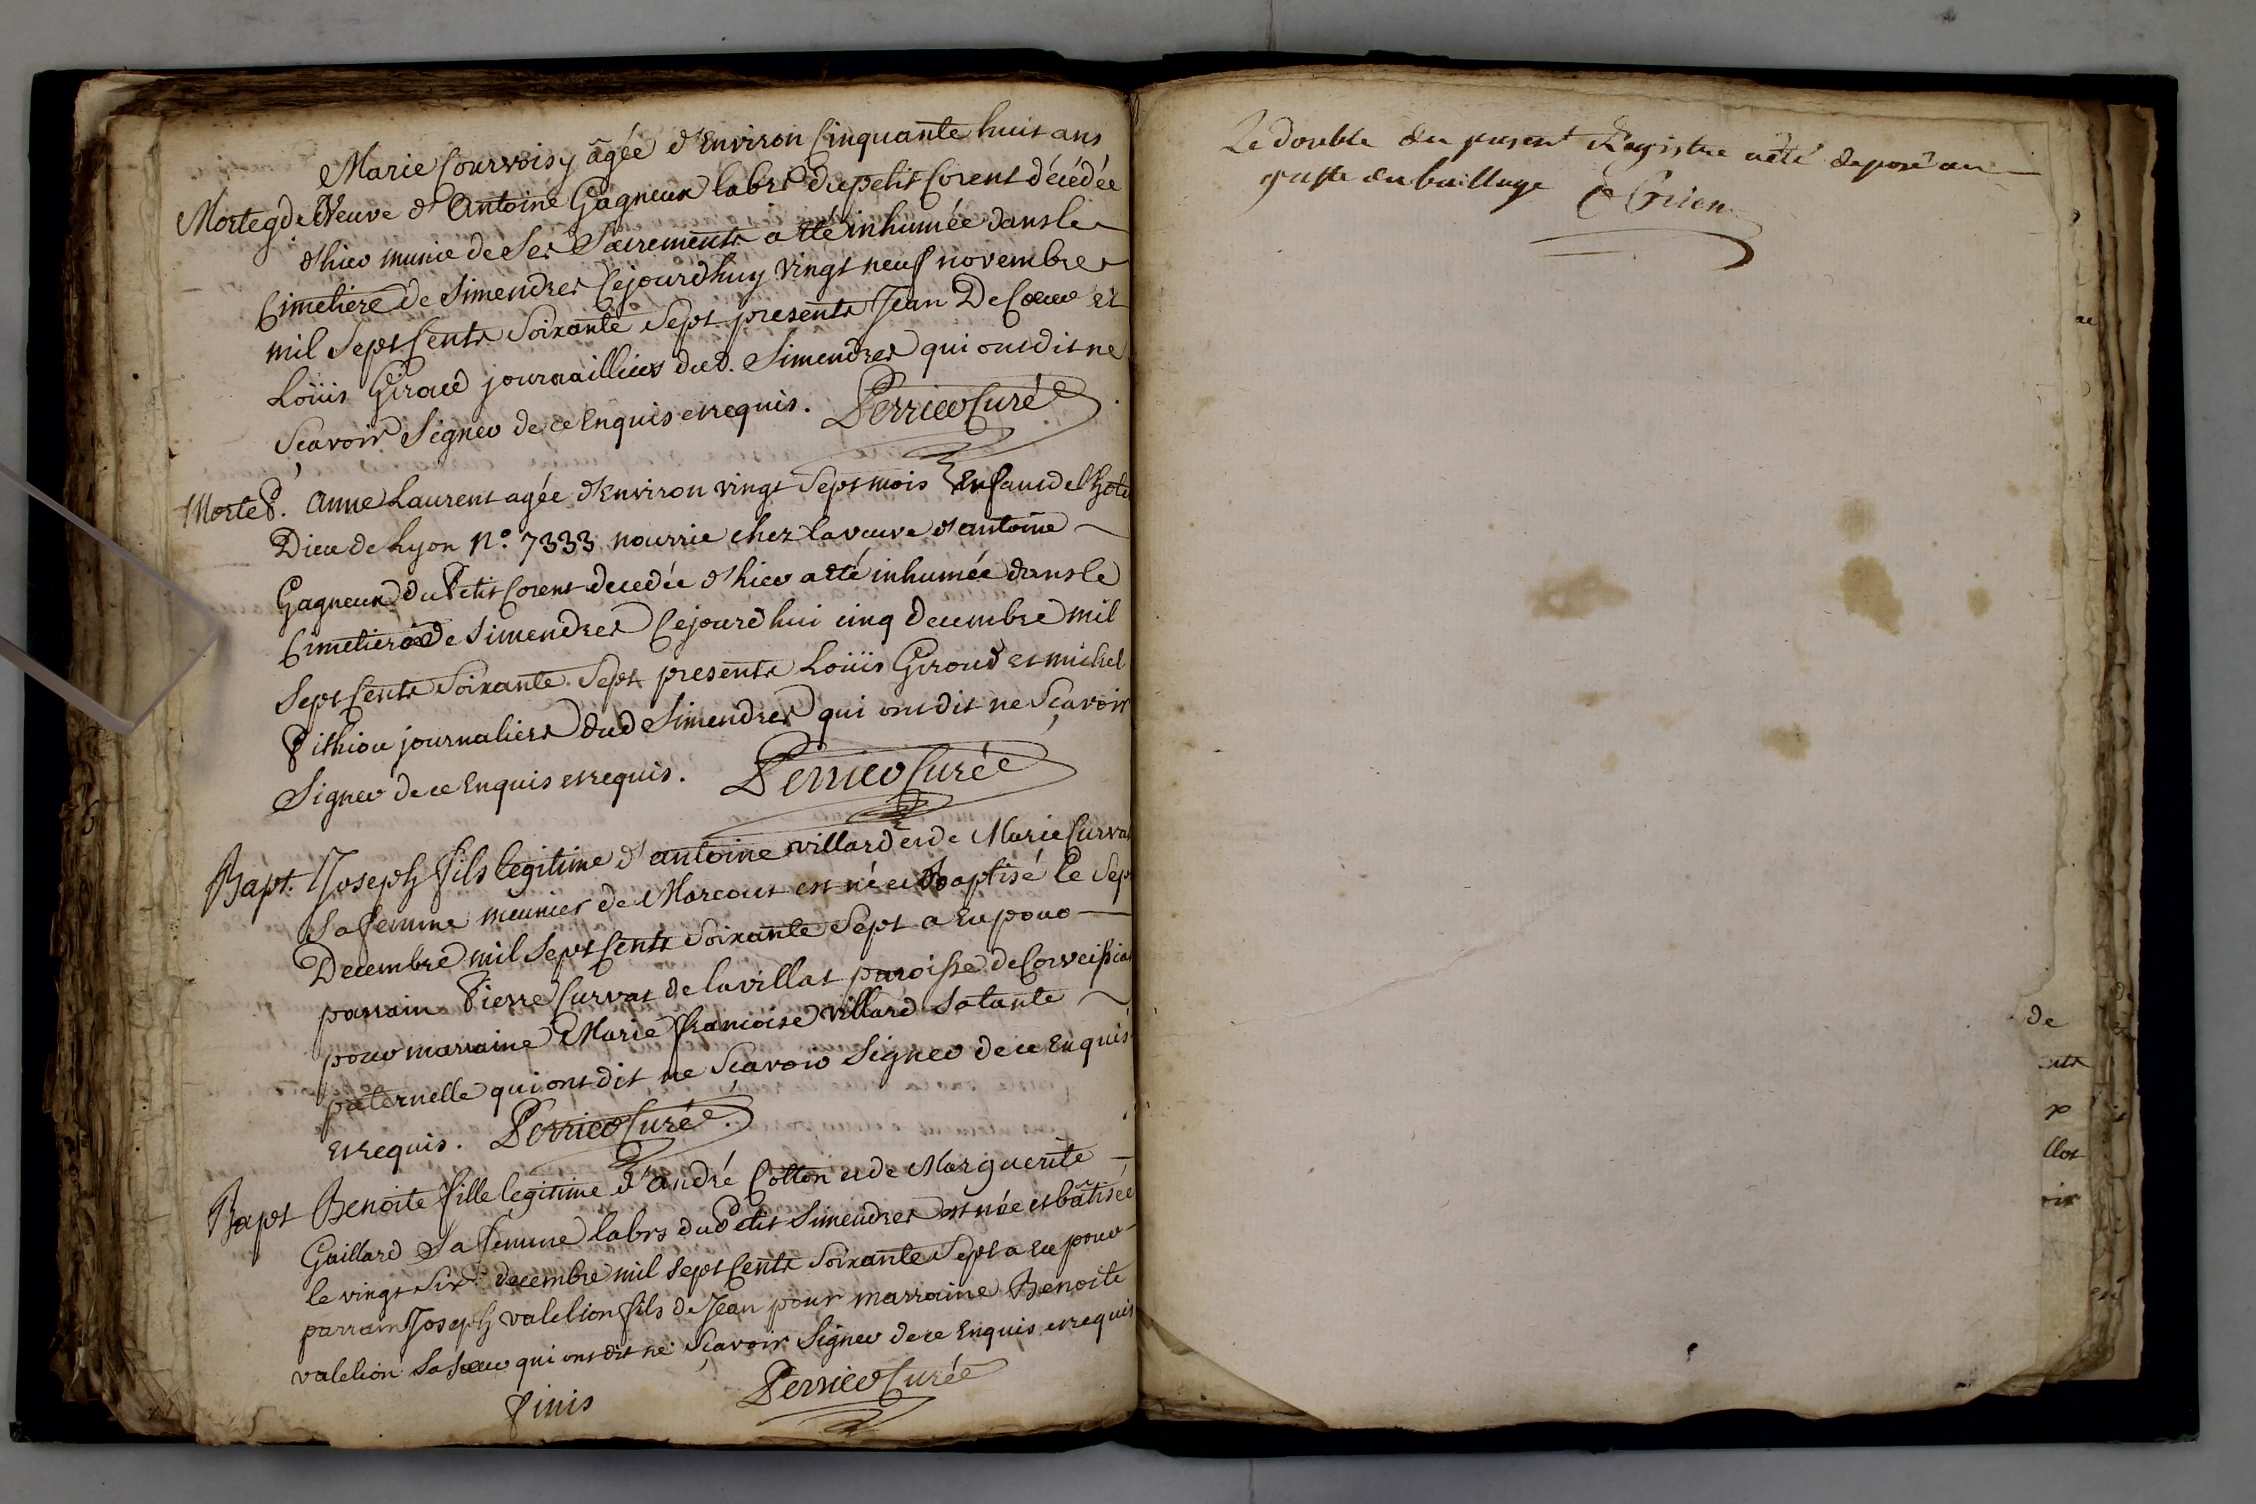 Marie Courvoisy âgée d'Environ Cinquante huit ans
Morte gde Veuve d'Antoine Gagneux labrs du petit Corent décédée
d'hier munie de Ses Sacrements a êté inhumée dans le
Cimetiere de Simendres Cejourdhuy vingt neuf novembre
mil Sept Cents Soixante Sept presents Jean De Coeur et
Loüis Giroud journailliers dud. Simendres qui ont dit ne
Sçavoir Signer de ce Enquis et requis. Perrier Curé
Morte P. Anne Laurent agée d'Environ vingt Sept mois Enfant de l'hotel
Dieu de Lyon N.o 7333 nourrie chez la veuve d'antoine
Gagneux du Petit Corent decedée d'hier a êté inhumée dans le
Cimetiere de Simendres Cejourd'hui cinq Decembre mil
Sept Cents Soixante Sept presents Loüis Giroud et michel
Pithiou journaliers dud Simendres qui ont dit ne Sçavoir
Signer de ce Enquis et requis. Perrier Curé
Bapt. Joseph fils legitime d'antoine villard et de Marie Curvat
Sa femme meunier de Marcout est né et Baptisé le Sept
Decembre mil Sept Cents Soixante Sept a Eu pour
parrain Pierre Curvat de la villat paroisse de Corveissiat
pour marraine Marie francoise villard Sa tante
paternelle qui ont dit ne Sçavoir Signer de ce Enquis
et requis. Perrier Curé.
Bapt Benoite fille legitime d'André Cotton et de Marguerite
Gaillard Sa femme labrs du Petit Simendres est née et bâtisée
le vingt Six decembre mil Sept Cents Soixante Sept a Eu pour
parrain Joseph valelion fils de Jean pour marraine Benoite
valelion Sa Soeur qui ont dit ne Sçavoir Signer de ce Enquis et requis
finis Perrier Curé
Le double du present Registre a été deposé au
greffe du bailliage
de
ents
p
llat
oir